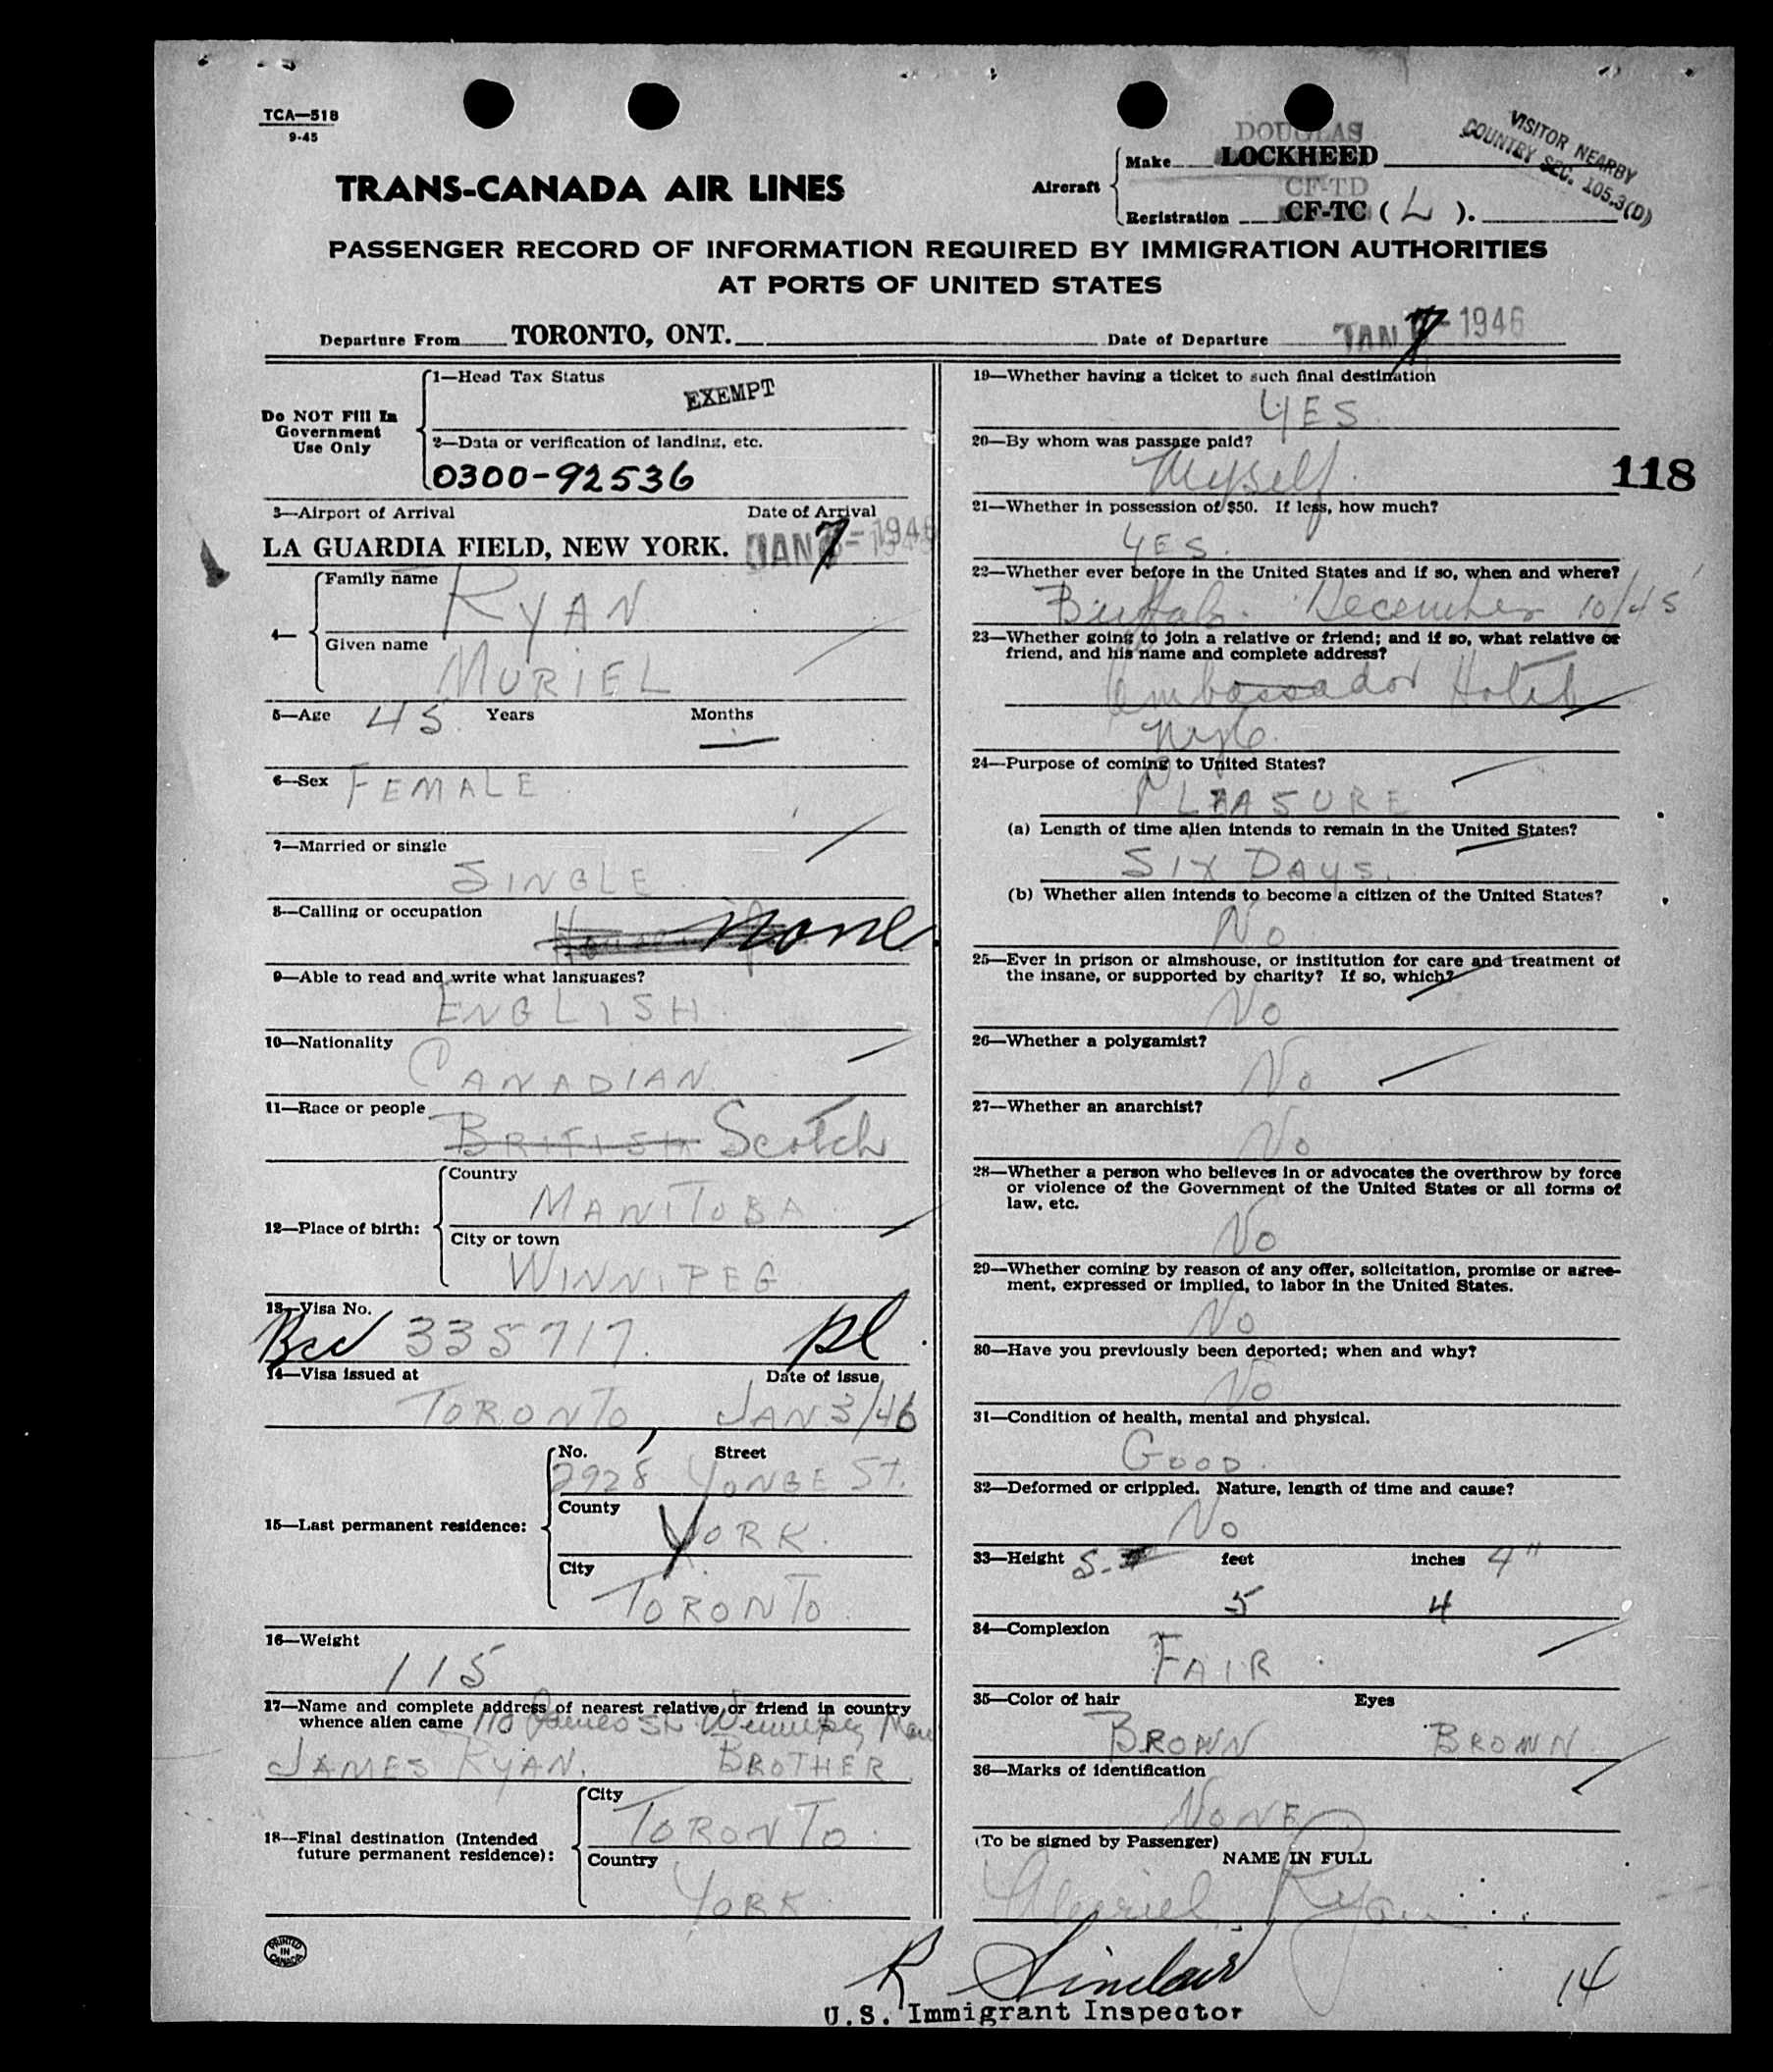 TCA—518
9-45
TRANS-CANADA AIR LINES
Aircraft
DOUGLAS
Make LOCKHEED
CF-TD
Registration CF-TC ( L ).
VISITOR NEARBY
COUNTRY SEC. 105.3(D)
PASSENGER RECORD OF INFORMATION REQUIRED BY IMMIGRATION AUTHORITIES
AT PORTS OF UNITED STATES
Departure From TORONTO, ONT.
Date of Departure JAN 7 - 1946
Do NOT Fill In
Government
Use Only
1—Head Tax Status
EXEMPT
2—Data or verification of landing, etc.
0300-92536
3—Airport of Arrival Date of Arrival
LA GUARDIA FIELD, NEW YORK. JAN 7 - 1946
4—
Family name
RYAN
Given name
MURIEL
5—Age 45 Years Months —
6—Sex FEMALE
7—Married or single
SINGLE
8—Calling or occupation
none
9—Able to read and write what languages?
ENGLISH
10—Nationality
CANADIAN
11—Race or people
BRITISH Scotch
12—Place of birth:
Country
MANITOBA
City or town
WINNIPEG
13—Visa No.
335717. pl
14—Visa issued at Date of issue
TORONTO, JAN 3/46
15—Last permanent residence:
No. Street
2928 YONGE ST.
County
YORK.
City
TORONTO.
16—Weight
115
17—Name and complete address of nearest relative or friend in country
whence alien came 110 James St. Winnipeg Man
JAMES RYAN. BROTHER
18—Final destination (Intended
future permanent residence):
City
TORONTO.
Country
YORK.
PRINTED
IN
CANADA
19—Whether having a ticket to such final destination
YES.
20—By whom was passage paid?
Myself.
118
21—Whether in possession of $50. If less, how much?
YES.
22—Whether ever before in the United States and if so, when and where?
Buffalo. December 10/45
23—Whether going to join a relative or friend; and if so, what relative or
friend, and his name and complete address?
Ambassador Hotel
NYC.
24—Purpose of coming to United States?
PLEASURE
(a) Length of time alien intends to remain in the United States?
SIX DAYS.
(b) Whether alien intends to become a citizen of the United States?
No
25—Ever in prison or almshouse, or institution for care and treatment of
the insane, or supported by charity? If so, which?
No
26—Whether a polygamist?
No
27—Whether an anarchist?
No
28—Whether a person who believes in or advocates the overthrow by force
or violence of the Government of the United States or all forms of
law, etc.
No
29—Whether coming by reason of any offer, solicitation, promise or agree-
ment, expressed or implied, to labor in the United States.
No
30—Have you previously been deported; when and why?
No
31—Condition of health, mental and physical.
GOOD.
32—Deformed or crippled. Nature, length of time and cause?
No
33—Height 5- feet inches 4"
5 4
34—Complexion
FAIR.
35—Color of hair Eyes
BROWN BROWN
36—Marks of identification
NONE
(To be signed by Passenger)
NAME IN FULL
Muriel Ryan
R Sinclair
U.S. Immigrant Inspector
14